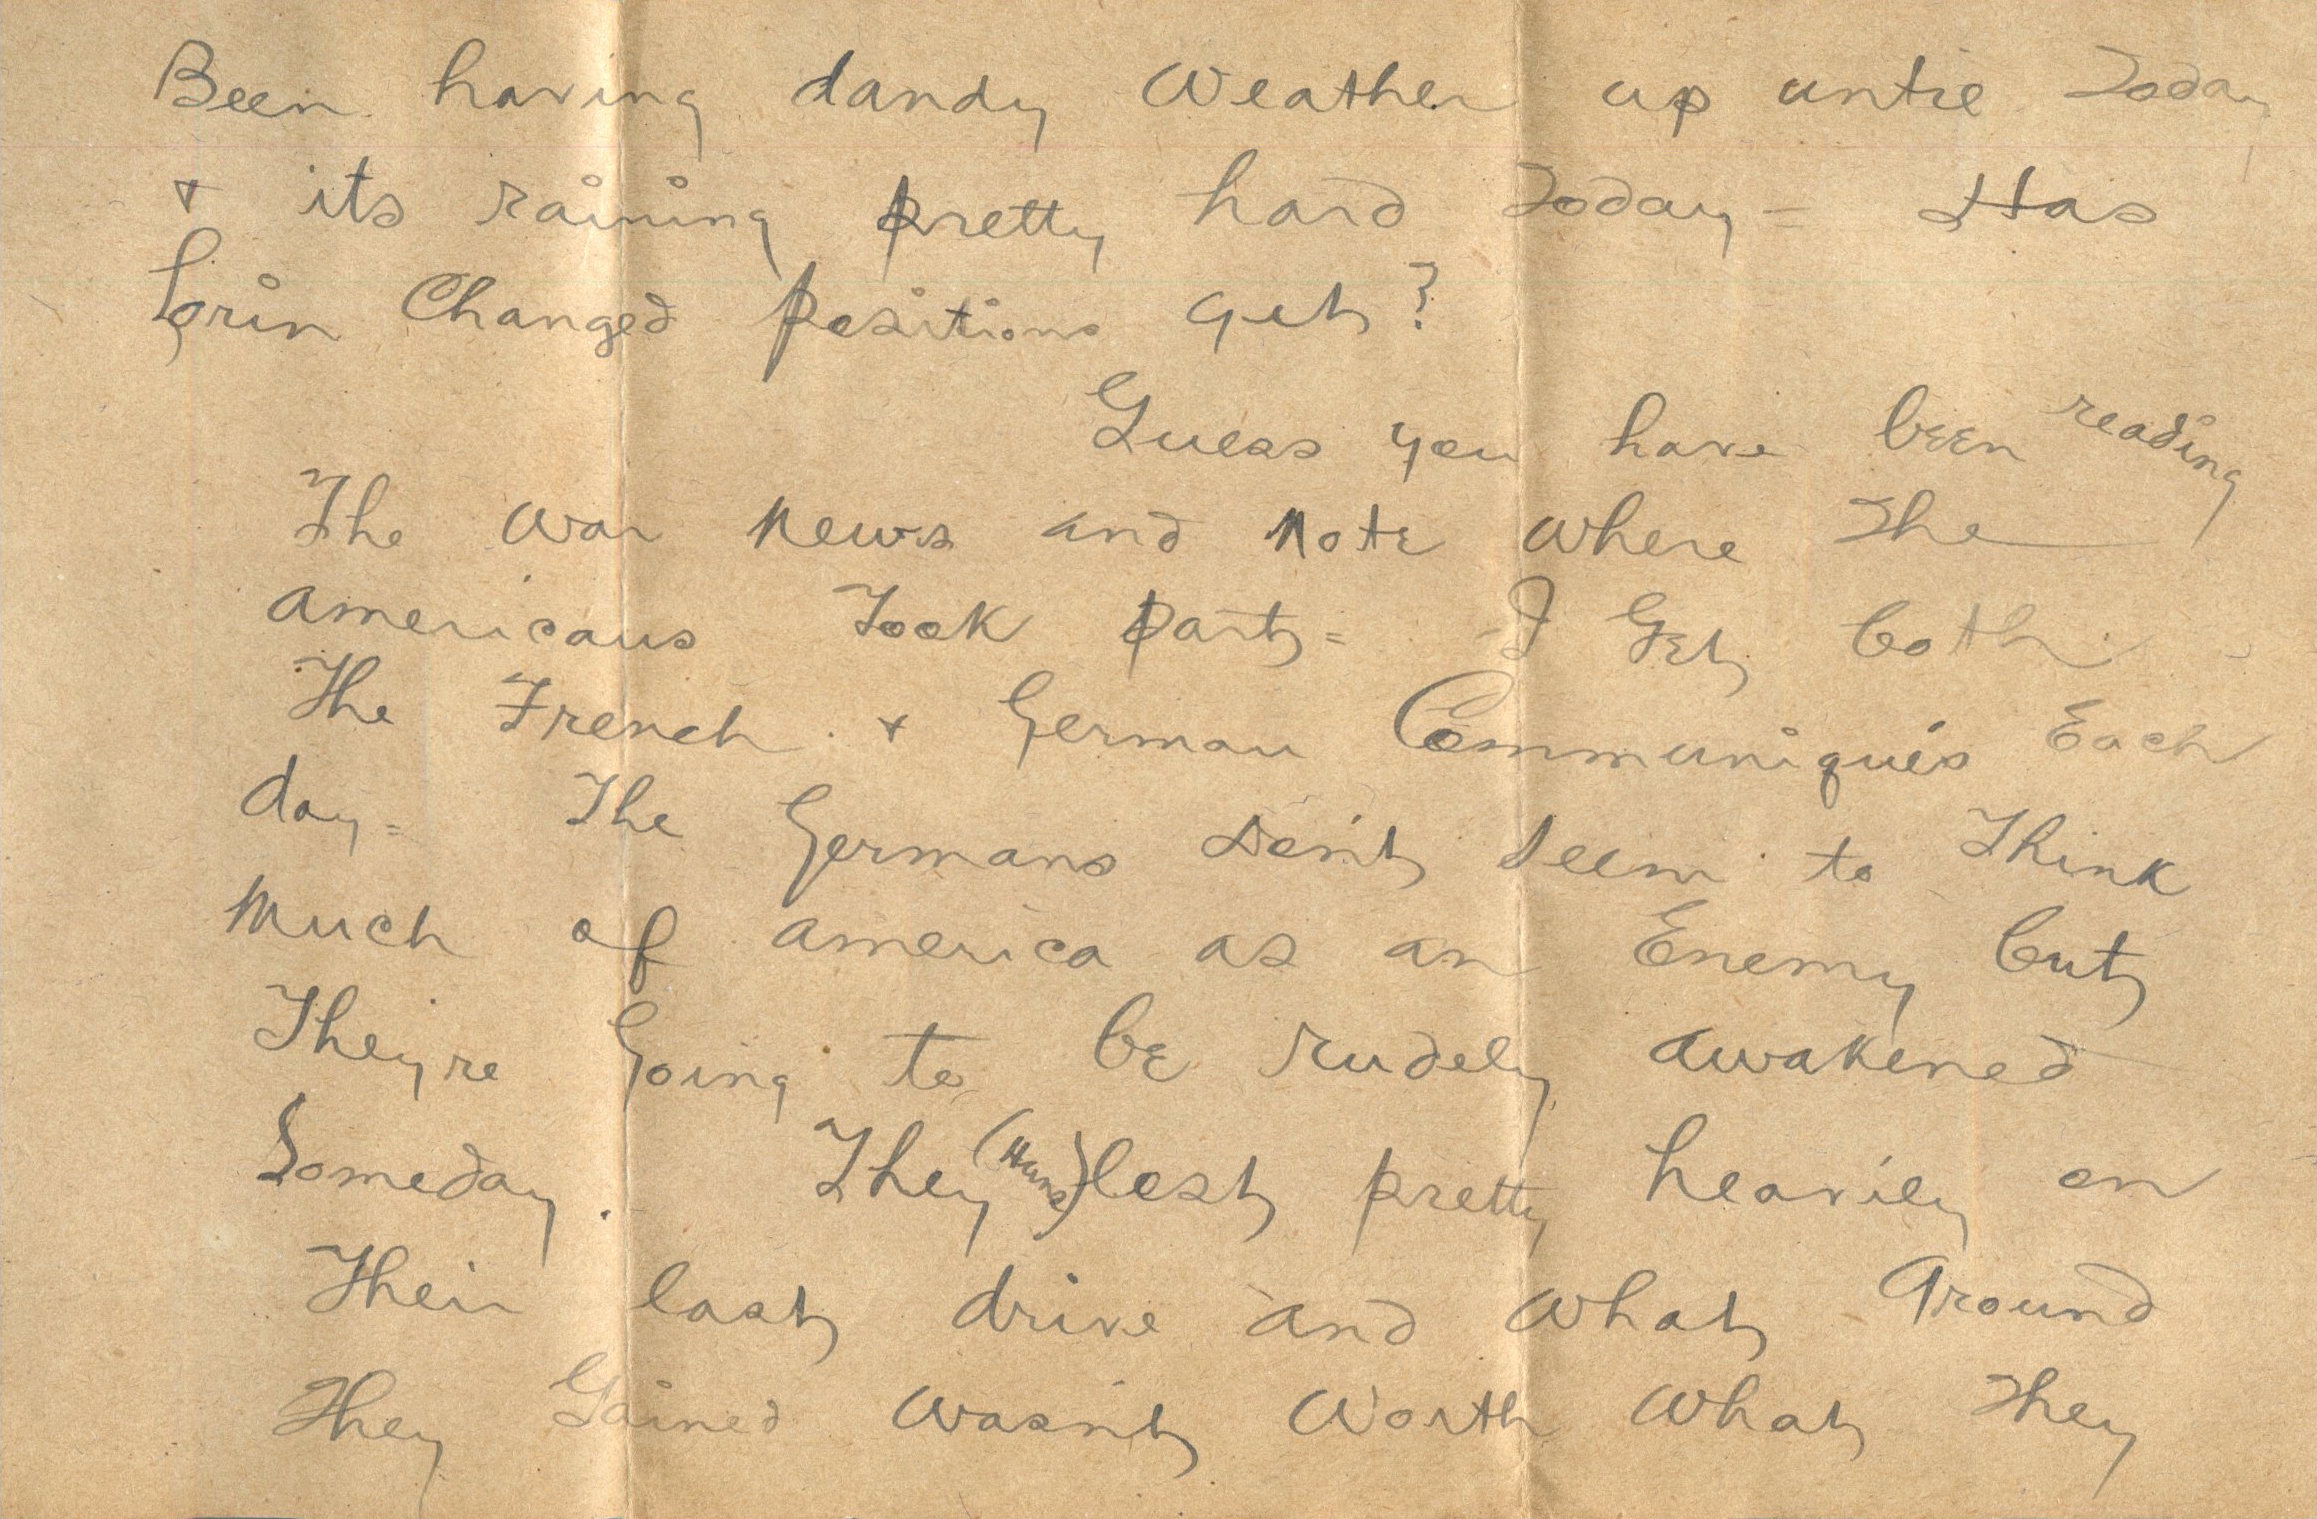 Been having dandy weather up until Today
+ its raining pretty hard Today = Has
Lorin Changed positions yet?
Guess you have been reading
The war news and note where The
americans Took part = I Get both
The French + German Communiqués Each
day = The Germans don't seem to Think
much of america as an Enemy but
They're Going to be rudely awakened
Someday. They (Huns) lost pretty heavily on
Their last drive and what Ground
They Gained wasn't worth what They